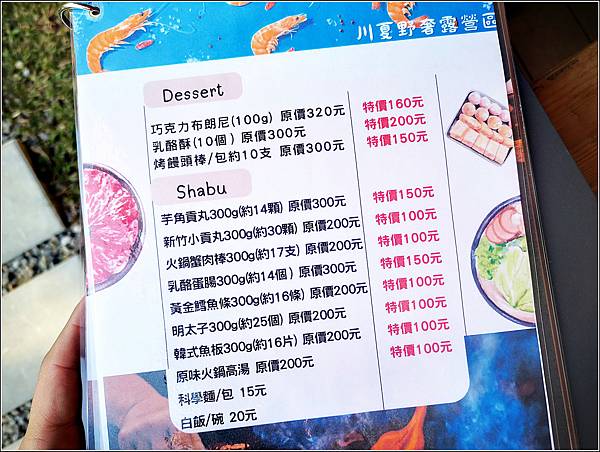 川夏野奢露營區
Dessert
巧克力布朗尼(100g) 原價320元 特價160元
乳酪酥(10個) 原價300元 特價200元
烤饅頭棒/包約10支 原價300元 特價150元
Shabu
芋角貢丸300g(約14顆) 原價300元 特價150元
新竹小貢丸300g(約30顆) 原價200元 特價100元
火鍋蟹肉棒300g(約17支) 原價200元 特價100元
乳酪蛋腸300g(約14個) 原價300元 特價150元
黃金鱈魚條300g(約16條) 原價200元 特價100元
明太子300g(約25個) 原價200元 特價100元
韓式魚板300g(約16片) 原價200元 特價100元
原味火鍋高湯 原價200元 特價100元
科學麵/包 15元
白飯/碗 20元